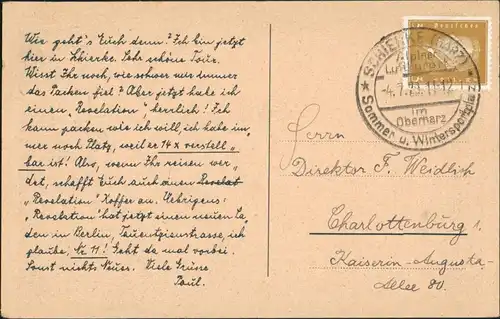 Wie geht's Euch denn? Ich bin jetzt
hier in Schierke. Sehr schöne Tour.
Wisst Ihr noch, wie schwer mir immer
das Packen fiel? Aber jetzt habe ich
einen „Revelation", herrlich! Ich
kann packen wie ich will, ich habe im„
mer noch Platz, weil er 14 x verstell„
bar ist! Also, wenn Ihr reisen wer„
det, schafft Euch auch einen Revelat
„Revelation" Koffer an. Uebrigens:
„Revelation" hat jetzt einen neuen La„
den in Berlin, Tauentzienstrasse, ich
glaube, Nr. 11! Geht da mal vorbei.
Sonst nichts Neues. Viele Grüsse
Paul.
SCHIERKE (HARZ)
4.7.
11-12
im
Oberharz
Sommer u. Wintersportplatz
Herrn
Direktor F. Weidlich
Charlottenburg 1.
Kaiserin-Augusta-
Allee 80.